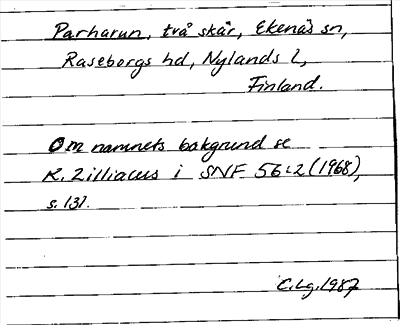 Parharun, två skär, Ekenäs sn,
Raseborgs hd, Nylands l,
Finland.
Om namnets bakgrund se
K. Zilliacus i SNF 56:2 (1968),
s. 131.
C.Lg. 1987